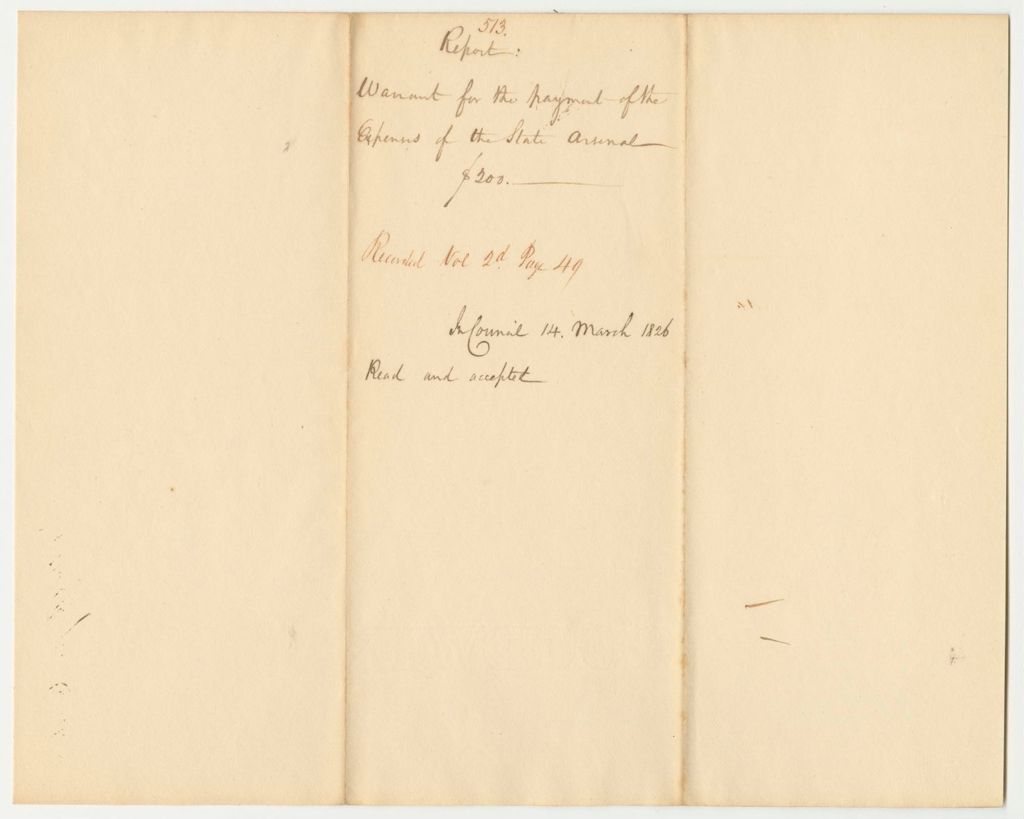 513.
Report:
Warrant for the payment of the
Expenses of the State Arsenal
$200.
Recorded Vol 2d Page 49
In Council 14. March 1826
Read and accepted